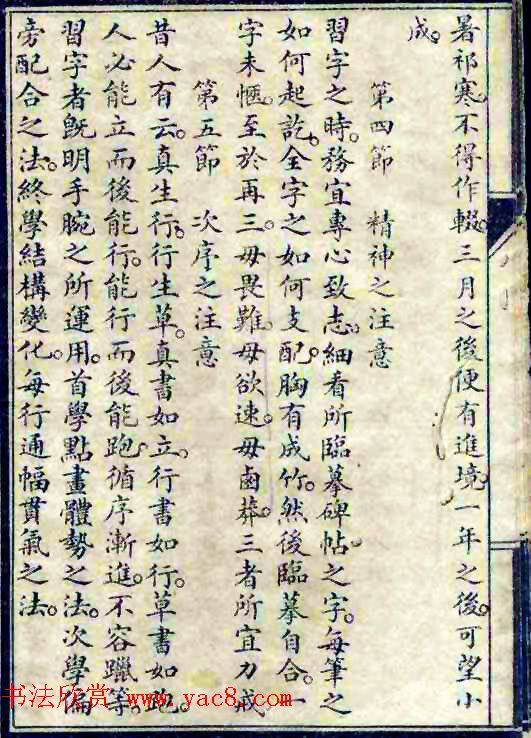 暑祁寒。不得作輟。三月之後便有進境。一年之後。可望小
成。
第四節 精神之注意
習字之時。務宜專心致志。細看所臨摹碑帖之字。每筆之
如何起訖。全字之如何支配。胸有成竹。然後臨摹自合。一
字未愜。至於再三。毋畏難。毋欲速。毋鹵莽。三者所宜力戒
第五節 次序之注意
昔人有云。真生行。行生草。真書如立。行書如行。草書如跑。
人必能立而後能行。能行而後能跑。循序漸進。不容躐等。
習字者既明手腕之所運用。首學點畫體勢之法。次學偏
旁配合之法。終學結構變化。每行通幅貫氣之法。
书法欣赏 www.yac8.com